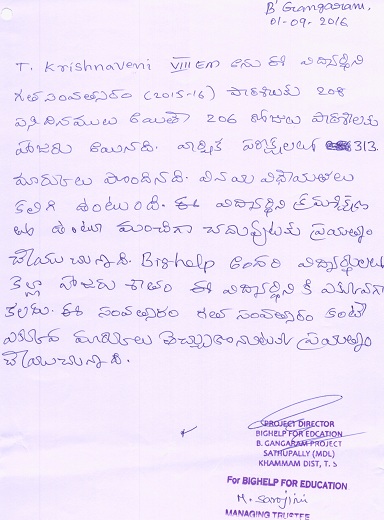 B' Gangaram,
01-09-2016
T. Krishnaveni VIII EM అను ఈ విద్యార్థిని
గత సంవత్సరం (2015-16) పాఠశాలకు 208
పనిదినములు అయితే 206 రోజులు పాఠశాలకు
హాజరు అయినది. వార్షిక పరీక్షలలో 313
మార్కులు పొందినది. వినయ విధేయతలు
కలిగి ఉంటుంది. ఈ విద్యార్థిని క్రమశిక్షణ
తో ఉంటూ మంచిగా చదువుటకు ప్రయత్నం
చేయుచున్నది. Bighelp అందరి విద్యార్థులలో
కెల్లా హాజరు శాతం ఈ విద్యార్థిని కి ఎక్కువగా
కలదు. ఈ సంవత్సరం గత సంవత్సరం కంటే
ఎక్కువ మార్కులు తెచ్చుకొనుటకు ప్రయత్నం
చేయుచున్నది.
PROJECT DIRECTOR
BIGHELP FOR EDCATION
B. GANGARAM PROJECT
SATHUPALLY (MDL)
KHAMMAM DIST, T. S
For BIGHELP FOR EDUCATION
M. Sarojini
MANAGING TRUSTEE